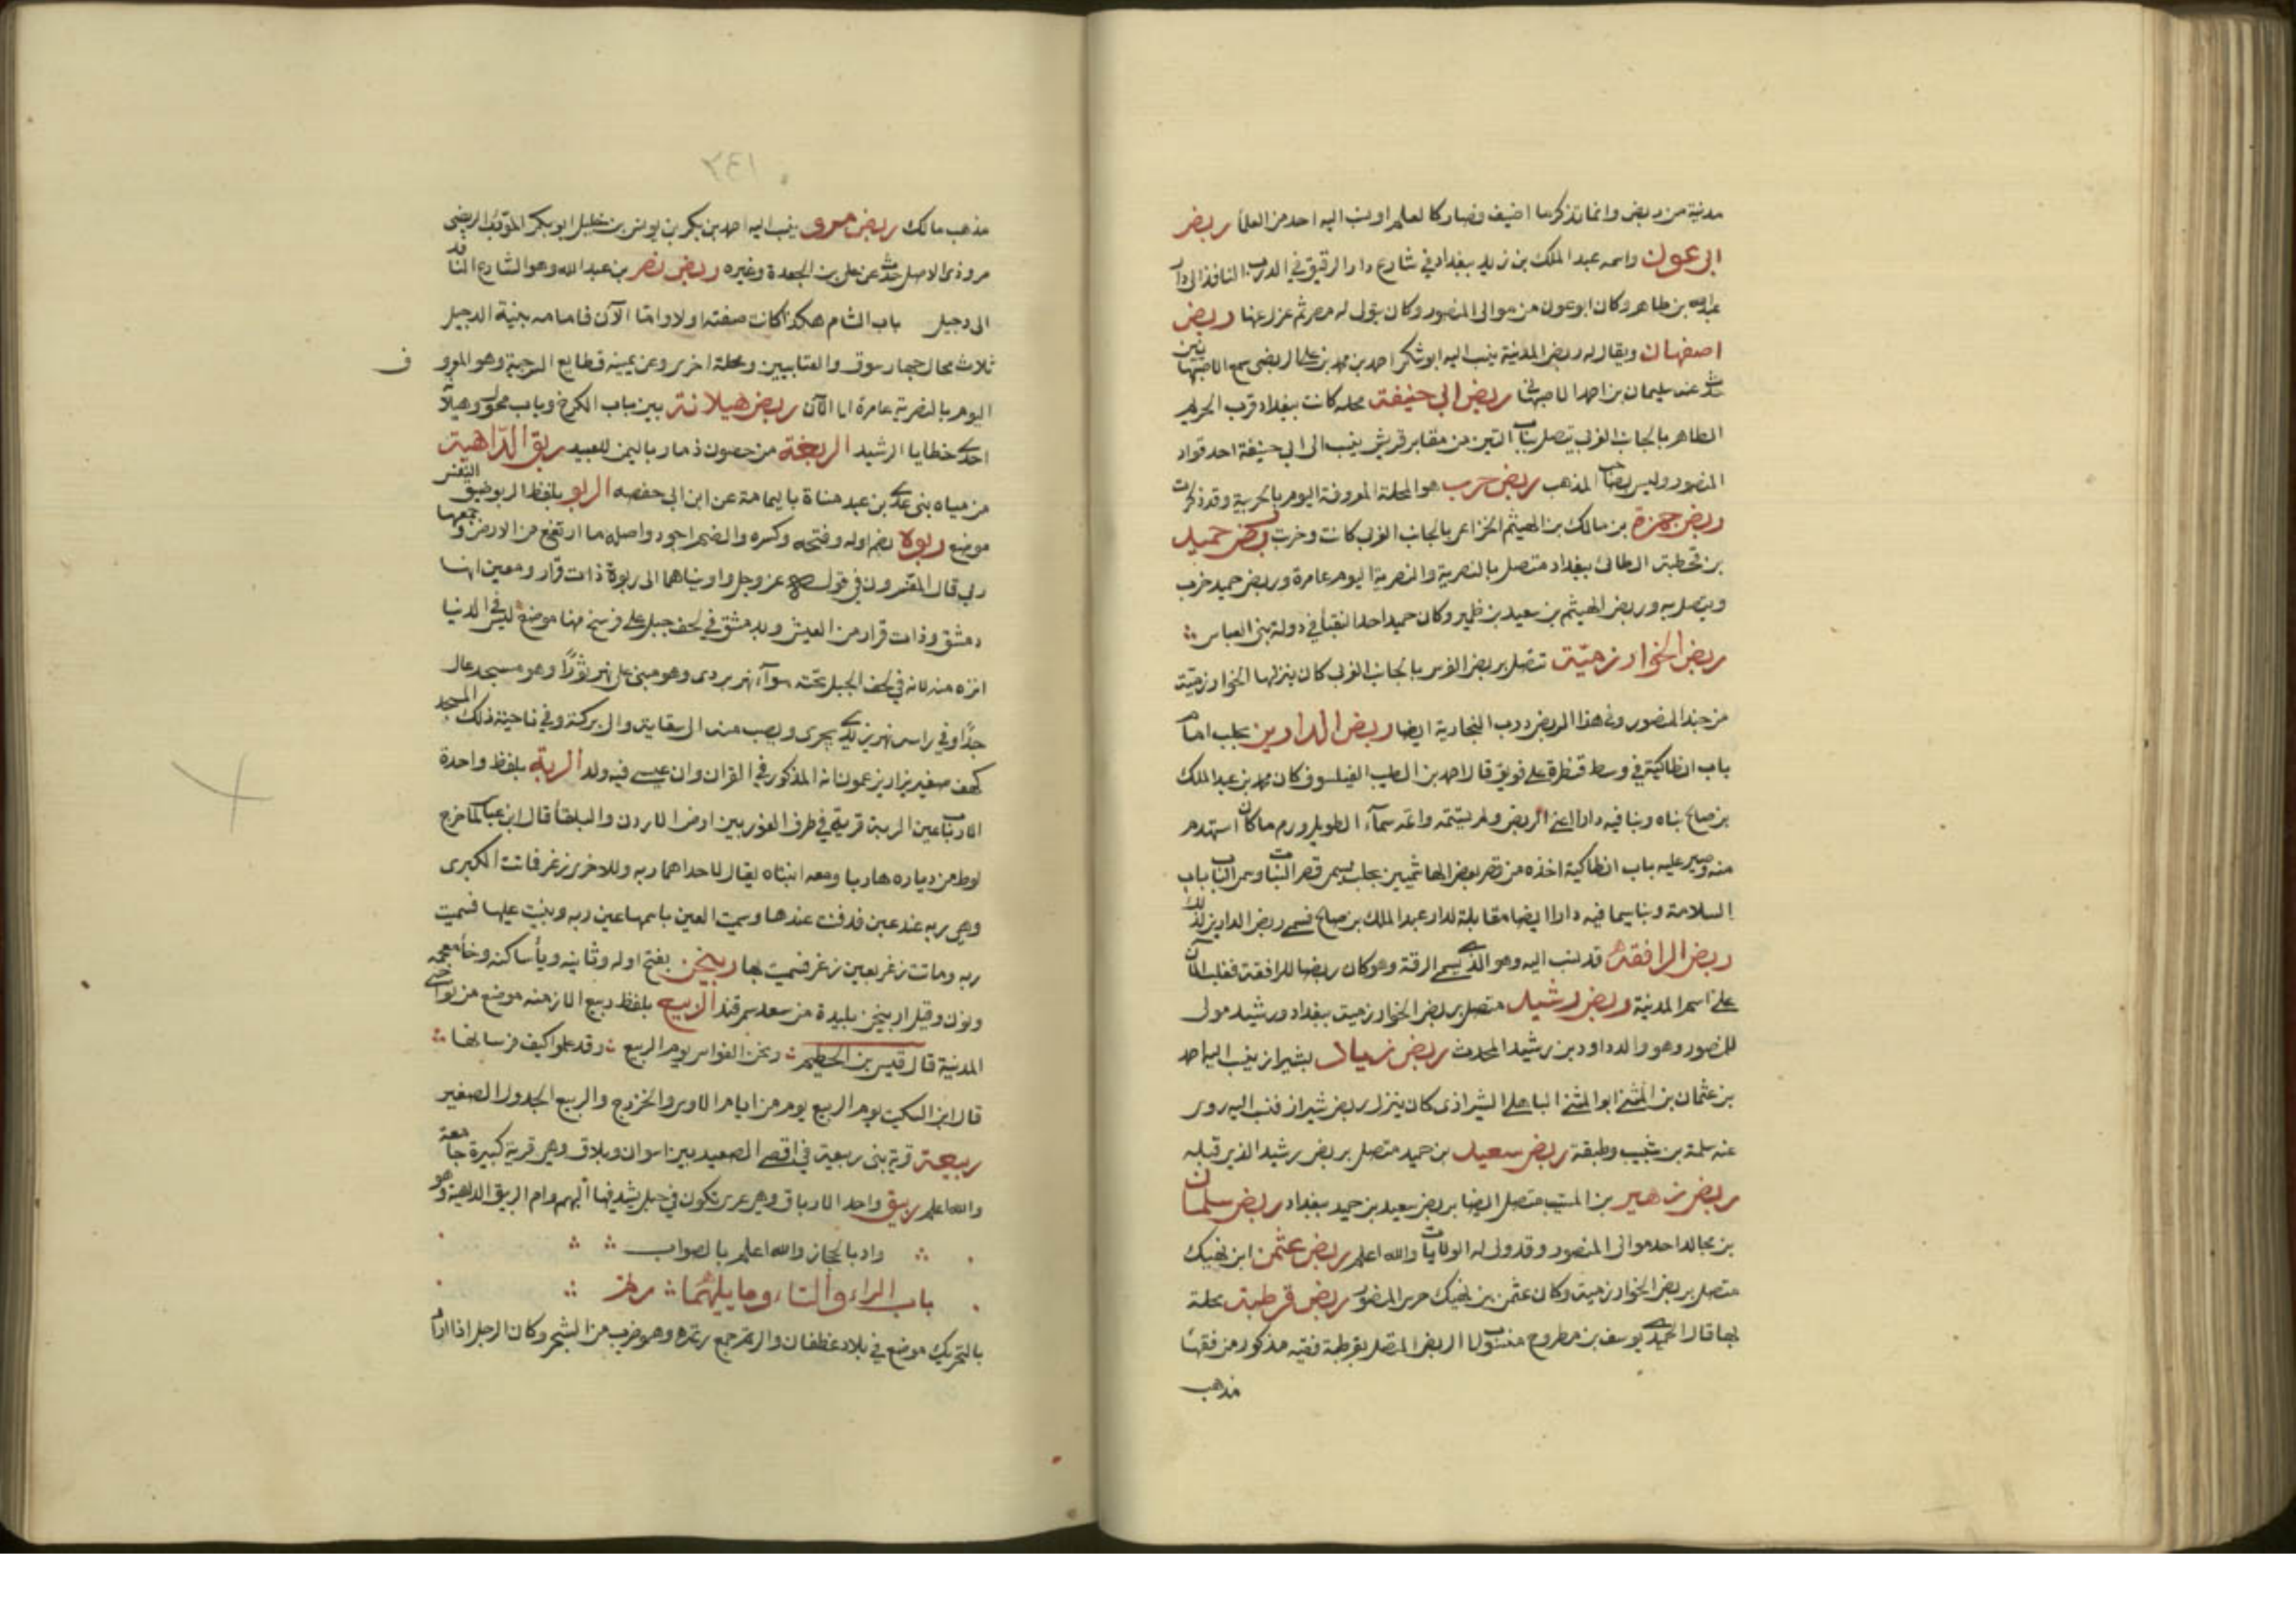 مدنية من ربض وانما نذكر ما اضيف فصار كالعلم او نسب اليه احد من العلما ربض
ابى عون واسمه عبد الملك بن زيد ببغداد في شارع دار الرقيق في الدرب النافذ الى دار
عبد الله بن طاهر وكان ابو عون من موالى المنصور وكان يتولى له مصر ثم عزل عنها وربض
اصفهان ويقال له ربض المدنية ينسب اليه ابو شكر احمد بن محمد بن على الربضى سمع الاصبهانيين
عند سليمان بن احمد الاصبهانى ربض ابى حنيفة محله كانت ببغداد قرب الحريم
الطاهر بالجانب الغربى تتصل بباب التين من مقابر قريش ينسب الى ابى حنيفة احد قواد
المنصور وليس بصاحب المذهب ربض حرب هو المحلة المعروفة اليوم بالحربية وقد ذكرت
ربض حمزة بن مالك بن الهيثم الخزاعى بالجانب الغربى كانت وخرب ربض حميد
بن قحطبة الطائى ببغداد متصل بالنصرية والنصرية اليوم عامرة وربض حميد خرب
ويتصل به وربض الهيثم بن سعيد بن ظهير وكان حميد احد النقبأ في دولة بنى العباس
ربض الخوارزمية تتصل بربض الفرس بالجانب الغربى كان ينزلها الخوارزمية
من جند المنصور وفي هذا الربض درب النجارية ايضا ربض الدارين بحلب امام
باب انطاكية في وسط قنطرة على قويق قال احمد بن الطيب الفيلسوف كان محمد بن عبد الملك
بن صالح بناه وبنا فيه دارا اعنى الربض ولم يستتمه واتمه سمآء الطويل ورم ما كان استهدم
منه وصير عليه باب انطاكية اخذه من قصر بعض الهاشميين بحلب يسمى قصر البنات وسمى الباب باب
السلامة وبنا سيما فيه دارا ايضا مقابلة لدار عبد الملك بن صالح فسمى ربض الدارين لذلك
ربض الرافقة قد نسب اليه وهو الذى يسمى الرقة وهو كان ربضا للرافقة فغلب الآن
على اسم المدنية وربض رشيد متصل بربض الخوارزمية ببغداد ورشيد مولى
للمنصور وهو والد داود بن رشيد المحدث ربض زياد بشيراز ينسب اليه احمد
بن عثمان بن المثنى ابو المثنى الباهلى الشيرازى كان ينزل ربض شيراز فنسب اليه روى
عنه سلمة بن شبيب وطبقة ربض سعيد بن حميد متصل بربض رشيد الذى قبله
ربض زهير بن المسيب متصل ايضا بربض سعيد بن حميد ببغداد ربض سليمان
بن مجالد احد موالى المنصور وقد ولى له الولايات والله اعلم ربض عثمن ابن نهيك
متصل بربض الخوارزمية وكان عثمن بن نهيك حرس المنصور ربض قرطبة محلة
بها قال الحميدى يوسف بن مطروح منسوب الى الربض المتصل بقرطبة فقيه مذكور من فقها
مذهب
٣٤١
مذهب مالك ربض مرو ينسب اليه احمد بن بكر بن يونس بن خليل ابو بكر المؤدب الربضى
مروذى الاصل حدث عن على بن الجعدة وغيره وربض نصر بن عبد الله وهو الشارع النافذ
الى دجيل باب الشام هكذا كانت صفته اولا واما الآن فامامه بنية الدجيل
ثلاث محال چهار سوق والعتابيين ومحلة اخرى وعن يمينه قطايع السرجية وهو المعروف
اليوم بالنصرية عامرة الى الآن ربض هيلانة بين باب الكرخ وباب محول وهيلانة
احدى خطايا الرشيد الربغة من حصون ذمار باليمن للعبيد ربق الداهية
من مياه بنى عدى بن عبد مناة باليمامة عن ابن ابى حفصه الربو بلفظ الربو ضيق النفس
موضع ربوة بضم اوله وفتحه وكسره والضم اجود واصله ما ارتفع من الارض وجمعها
ربى قال المفسرون في قوله عز وجل واويناهما الى ربوة ذات قرار ومعين انها
دمشق وذات قرار من العيش وبدمشق في لحف جبل على فرسخ منها موضع ليس في الدنيا
انزه منه لانه في لحف الجبل تحته سوآء نهر بردى وهو مبنى على نهر ثورا وهو مسجد عال
جدا وفي راس نهر يزيد يجرى ويصب منه الى سقاية والى بركة وفي ناحية ذلك المسجد
كهف صغير يزار يزعمون انه المذكور في القران وان عيسى فيه ولد الربة بلفظ واحدة
الارباب عين الربة قرية في طرف الغور بين ارض الاردن والبلقأ قال ابن عباس لما خرج
لوط من دياره هاربا ومعه ابنتاه يقال لاحداهما ربه وللاخرى زغر فاتت الكبرى
وهى ربه عند عين فدفنت عندها وسميت العين باسمها عين ربه وبنيت عليها فسميت
ربه وماتت زغر بعين زغر فسميت بها ربيخن بفتح اوله وثانيه ويأ ساكنه وخأ معجمه
ونون وقيل اربيخن بليدة من سعد سمرقند الربيع بلفظ ربيع الازمنه موضع من نواحى
المدنية قال قيس بن الخطيم ونحن الفوارس يوم الربيع وقد علموا كيف فرسانها
قال ابن السكيت يوم الربيع يوم من ايام الاوس والخزرج والربيع الجدول الصغير
ربيعة قرية بنى ربيعة في اقصى الصعيد بين اسوان وبلاق وهى قرية كبيرة جامعة
والله اعلم ربيق واحد الارباق وهى عرى تكون في حبل يشد فيها البهم وام الربيق الداهية وهو
واد بالحجاز والله اعلم بالصواب
باب الراء والتاء وما يليهما رتم
بالتحريك موضع في بلاد غطفان والرتم جمع رتمة وهو ضرب من الشجر وكان الرجل اذا اراد